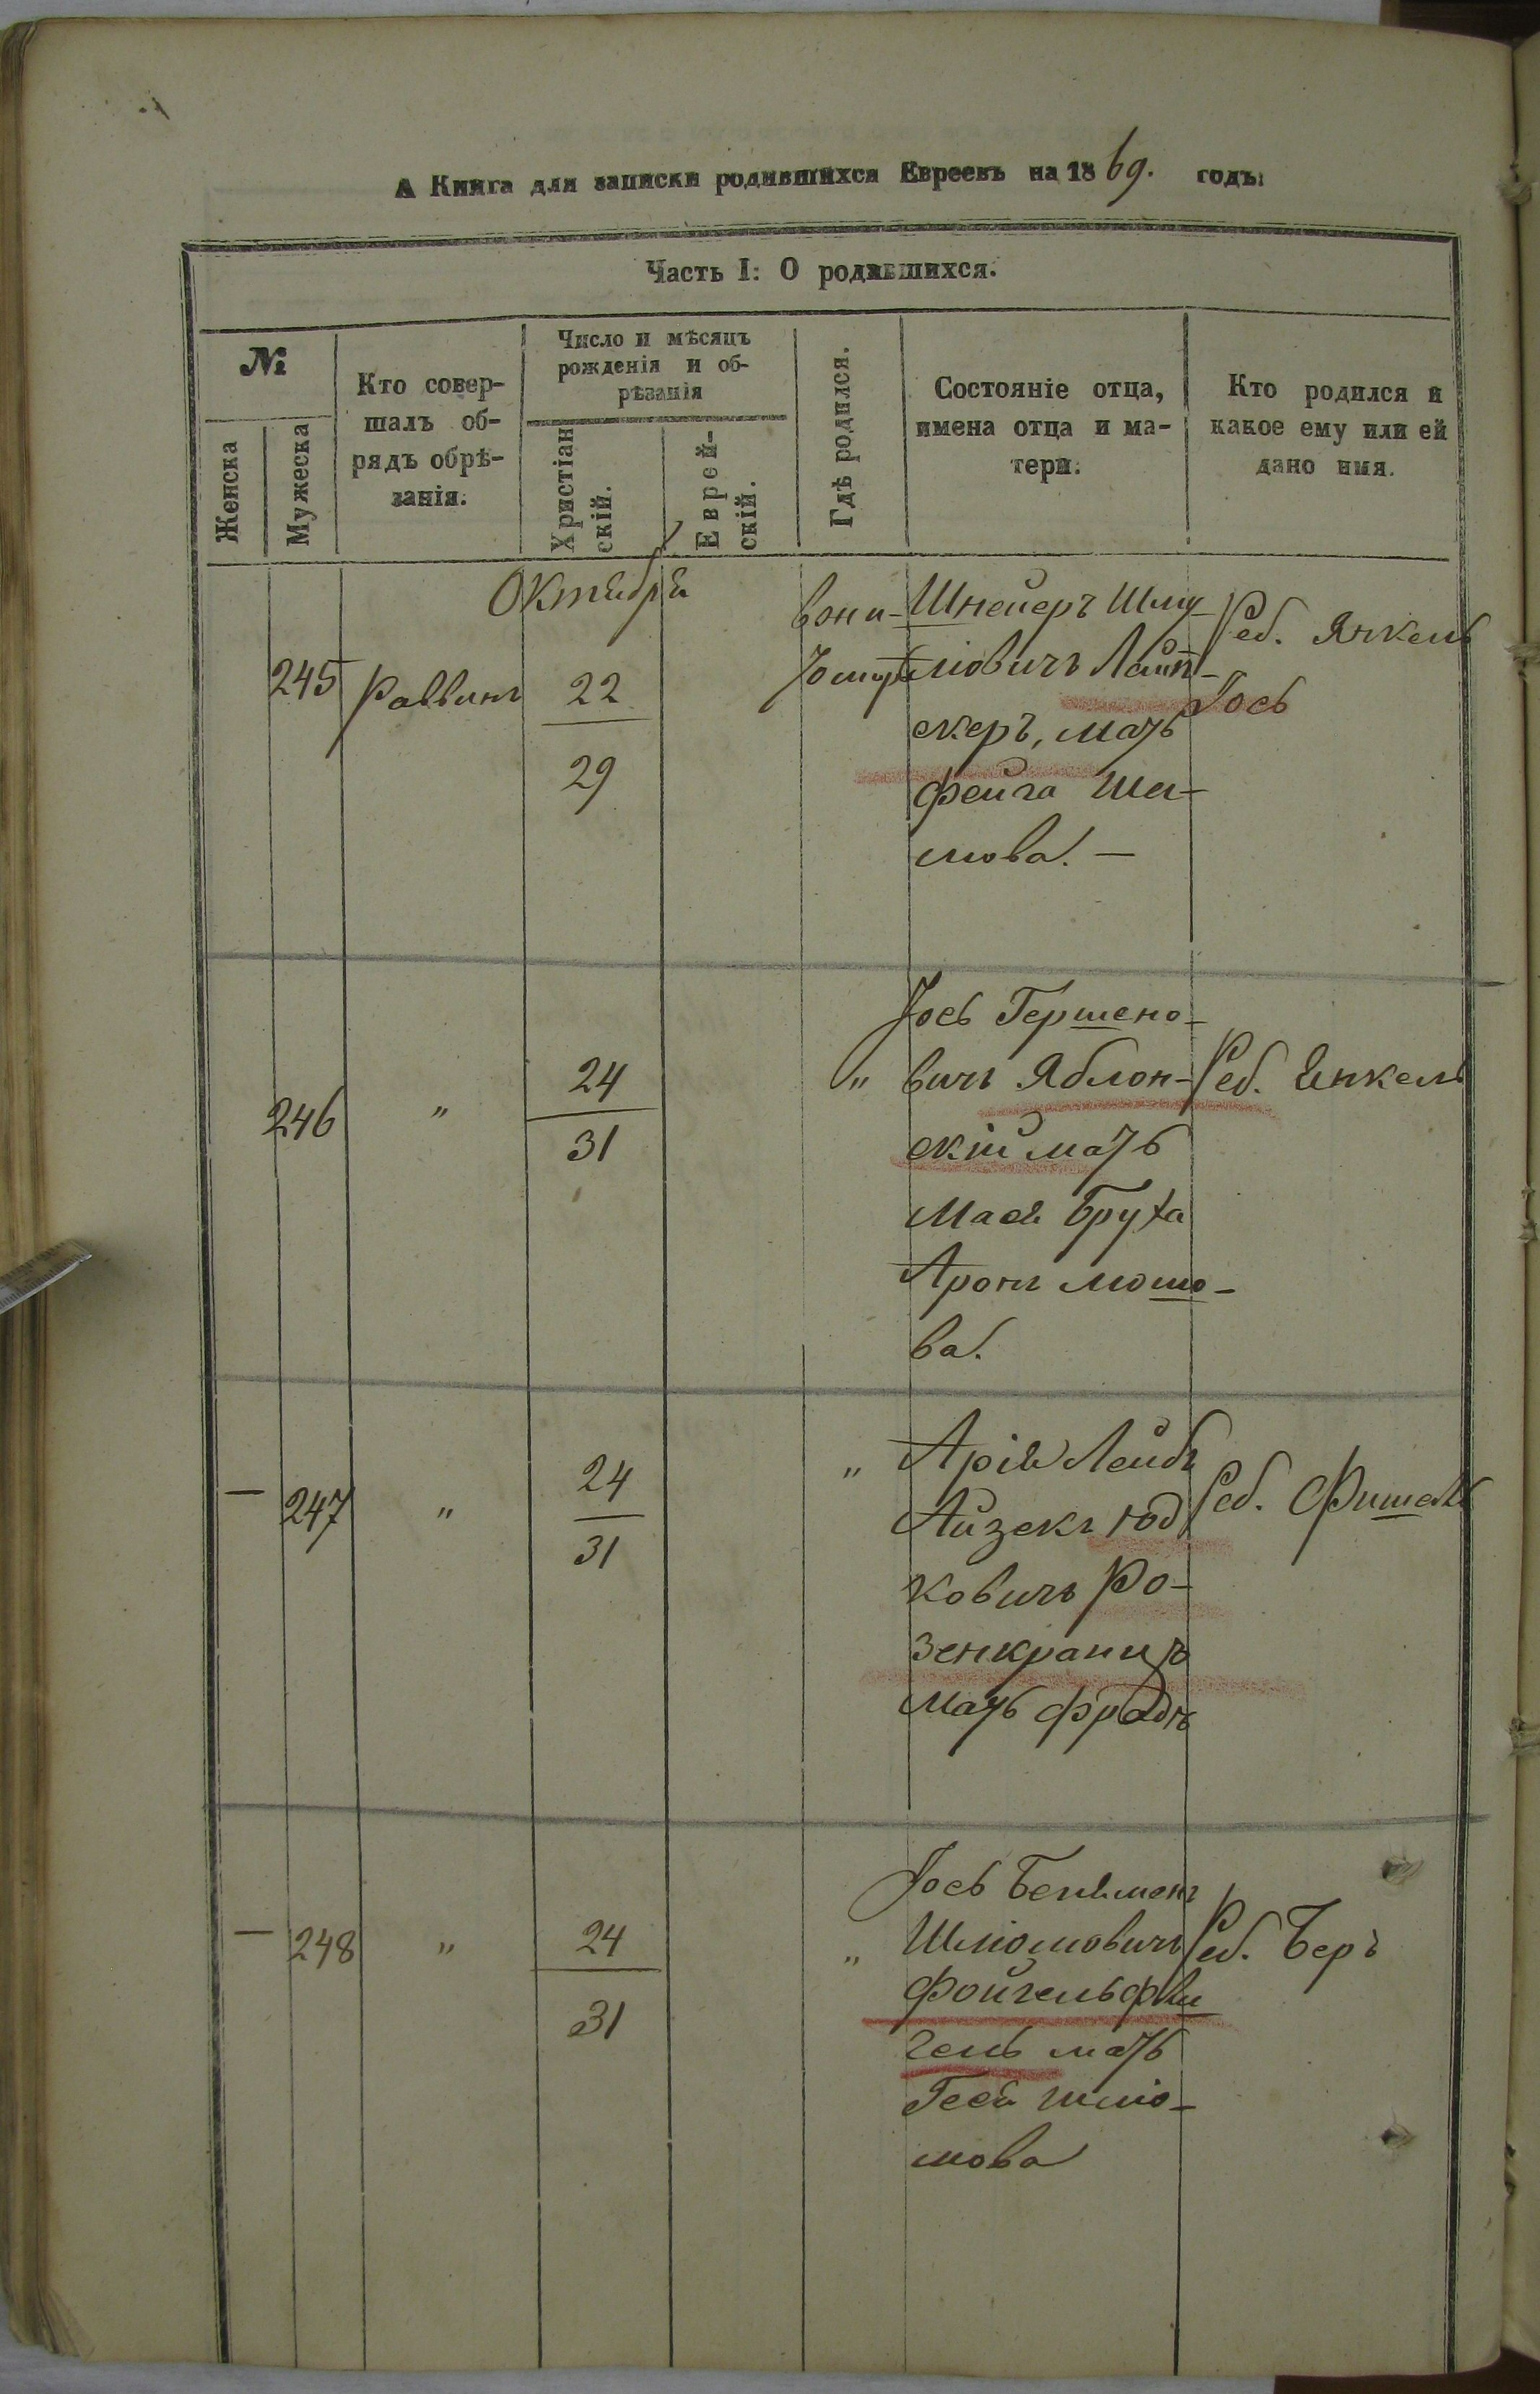 А Книга для записки родившихся Евреевъ на 1869. годъ:
Часть I: О родившихся.
№
Женска
Мужеска
Кто совер-
шалъ об-
рядъ обрѣ-
занія.
Число и мѣсяцъ
рожденія и об-
рѣзанія
Христіан
скій.
Еврей-
скій.
Гдѣ родился.
Состояніе отца,
имена отца и ма-
тери.
Кто родился и
какое ему или ей
дано имя.
Октября
245
Раввинъ
22
29
Шнеиеръ Шму-
ловичъ
скеръ, мать
Фейга Ше-
мова. —
Реб. Янкель
Іось
246
"
24
31
"
Іось Гершено-
вичъ Яблон-
скій мать
Мася Бруха
Аронъ Мошо-
ва.
Реб. Янкель
—
247
"
24
31
"
Арія Лейбъ
Айзекъ Юд
ковичъ Ро-
зенкранцъ
мать Фрадъ
Реб. Фишель
—
248
"
24
31
"
Іось Беняменъ
Шліомовичъ
Фойгельфли
гель мать
Геся Шліо-
мова
Реб. Беръ